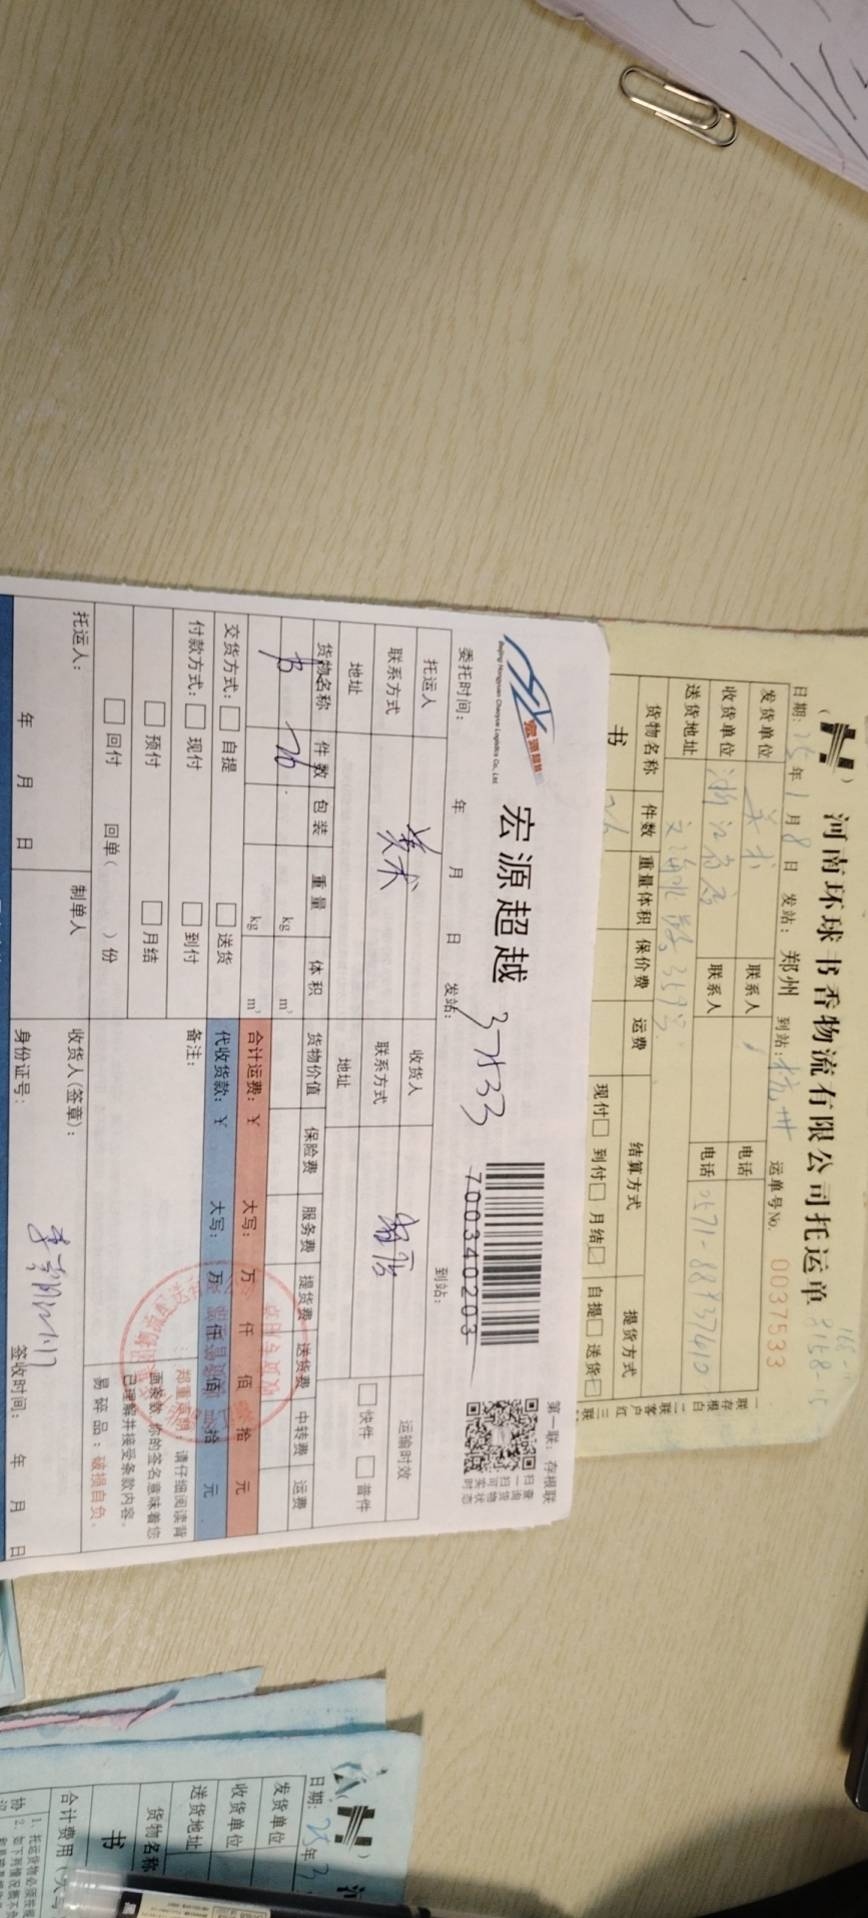 河南环球书香物流有限公司托运单
日期:25年1月8日 发站:郑州 到站:杭州 运单号No. 0037533
发货单位 美术 联系人 电话
收货单位 浙江省店 联系人 电话 0571-88937610
送货地址
货物名称 件数 重量体积 保价费 运费 结算方式 提货方式
书 26 现付□ 到付□ 月结□ 自提□ 送货□
一联存根白 二联客户红 三联
宏源超越
宏源超越
Beijing Hongyuan Chaoyue Logistics Co., Ltd.
37533
700340203
第一联:存根联
扫一扫可实时
查询货物状态
委托时间: 年 月 日 发站: 到站:
托运人 美术 收货人 省店 运输时效
联系方式 联系方式
地址 地址 □快件 □普件
货物名称 件数 包装 重量 体积 货物价值 保险费 服务费 提货费 送货费 中转费 运费
书 26 kg m³
kg m³ 合计运费:¥ 大写: 万 仟 佰 拾 元
交货方式:□自提 □送货 代收货款:¥ 大写: 万 仟 佰 拾 元
付款方式:□现付 □到付 备注:
□预付 □月结
□回付 回单( )份
郑重声明:请仔细阅读背
面条款,你的签名意味着您
已理解并接受条款内容。
易碎品:破损自负。
托运人: 制单人 收货人(签章):
年 月 日 身份证号: 签收时间: 年 月 日
日期:25年3
发货单位
收货单位
送货地址
货物名称
书
合计费用(大写